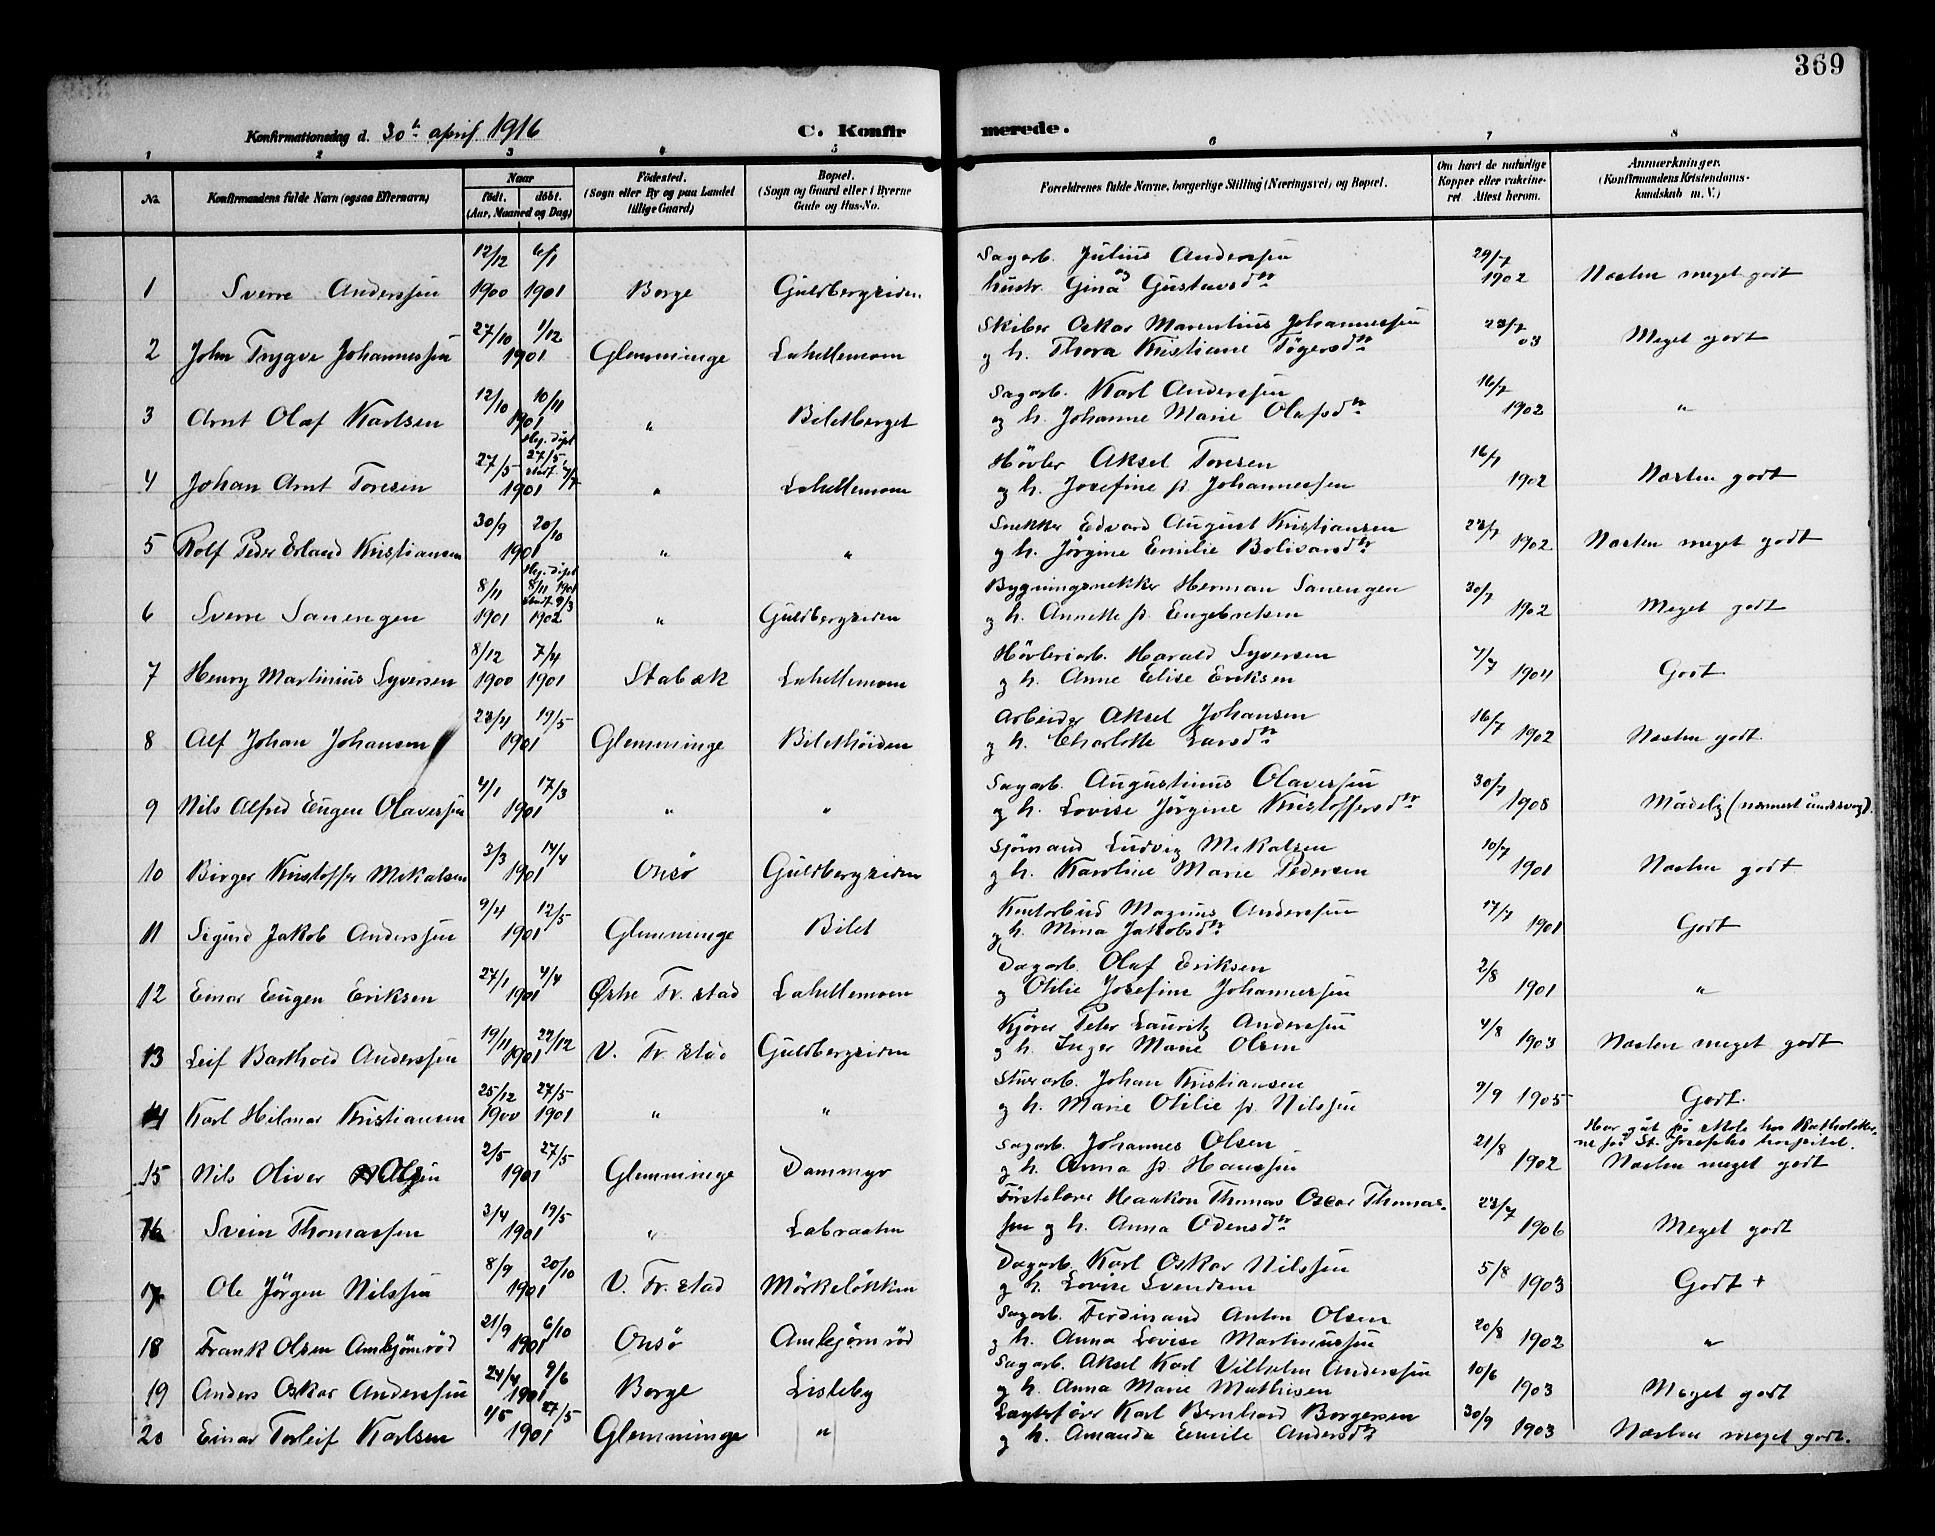 369
Konfirmationsdag d. 30te april 1916
C. Konfirmerede.
1 2 3 4 5 6 7 8
No.
Konfirmandens fulde Navn (ogsaa Efternavn)
Naar
født. døbt.
(Aar, Maaned og Dag)
Fødested.
(Sogn eller By og paa Landet
tillige Gaard)
Bopæl.
(Sogn og Gaard eller i Byerne
Gade og Hus-No.
Forældrenes fulde Navne, borgerlige Stilling (Næringsvei) og Bopæl.
Om havt de naturlige
Kopper eller vakcine-
ret Attest herom.
Anmærkninger.
(Konfirmandens Kristendoms-
kundskab m. V.)
12/12 6/1 Sagarb. Julius Anderssen 29/7
1 Sverre Anderssen 1900 1901 Borge Guldbergsiden og hustr. Gina Gustavsdtr 1902 Næsten meget godt
27/10 1/12 Skiber Oskar Marentius Johannessen 23/7
2 John Trygve Johannessen 1901 Glemminge Lahellemoen og h. Thora Kristiane Tögersdtr 03 Meget godt
12/10 10/11 Sagarb. Karl Anderssen 16/7
3 Arnt Olaf Karlsen 1901 " Biletberget og h. Johanne Marie Olafsdtr 1902 "
27/5 Hj. døpt 27/5 Stadf. 7/7 Hövler Aksel Toresen 16/7
4 Johan Arnt Toresen 1901 " Lahellemoen og h. Josefine f. Johannessen 1902 Næsten godt
30/9 20/10 Snekker Edvard August Kristiansen 23/7
5 Rolf Peder Erland Kristiansen 1901 " " og h. Jörgine Emilie Bolivarsdtr 1902 Næsten meget godt
8/11 Hj. døpt 8/11 1901 Stadf. 9/3 Bygningssnekker Herman Sanengen 30/7
6 Sverre Sanengen 1901 1902 " Guldbergsiden og h. Annette f. Engebretsen 1902 Meget godt
8/12 7/4 Hövleriarb. Harald Syversen 7/7
7 Henry Martinius Syversen 1900 1901 Stabæk Lahellemoen og h. Anne Elise Eriksen 1904 Godt
23/4 19/5 Arbeider Aksel Johansen 16/7
8 Alf Johan Johansen 1901 Glemminge Bilethöiden og h. Charlotte Larsdtr 1902 Næsten godt.
4/1 17/3 Sagarb. Augustinus Olavessen 30/7
9 Nils Alfred Eugen Olavessen 1901 " " og h. Lovise Jörgine Kristoffersdtr 1908 Mådelig (nærmest åndssvag).
3/3 14/4 Sjømand Ludvig Mikalsen 10/7
10 Birger Kristoffer Mikalsen 1901 Onsö Guldbergsiden og h. Karoline Marie Pedersen 1901 Næsten godt
9/4 12/5 Kontorbud Magnus Anderssen 17/7
11 Sigurd Jakob Anderssen 1901 Glemminge Bilet og h. Mina Jakobsdtr 1901 Godt
27/1 4/4 Dagarb. Olaf Eriksen 2/8
12 Einar Eugen Eriksen 1901 Østre Fr.stad Lahellemoen og Otilie Josefine Johannessen 1901 "
19/11 22/12 Kjörer Peter Lauritz Anderssen 4/8
13 Leif Barthold Anderssen 1901 V. Fr. stad Guldbergsiden og h. Inger Marie Olsen 1903 Næsten meget godt
25/12 27/5 Stuearb. Johan Kristiansen
14 Karl Hilmar Kristiansen 1900 1901 " " og h. Marie Otilie f. Nilssen 9/9 1905 Godt.
2/5 27/5 Sagarb. Johannes Olsen 21/8 Har gåt på skole hos Katholiker-
ne på St. Josephs hospital.
15 Nils Oliver Olsen 1901 Glemminge Dammyr og h. Anna f. Hanssen 1902 Næsten meget godt
3/4 19/5 Förstelærer Haakon Thomas Oscar Thomas- 23/7
16 Svein Thomassen 1901 " Labraaten sen og h. Anna Odensdtr 1906 Meget godt
8/9 20/10 Dagarb. Karl Oskar Nilssen 5/8
17 Ole Jörgen Nilssen 1901 V. Fr. stad Mörkelökken og h. Lovise Svendsen 1903 Godt +
21/9 6/10 Sagarb. Ferdinand Anton Olsen 20/8
18 Frank Olsen Ambjörnröd 1901 Onsö Ambjörnröd og h. Anna Lovise Martinussen 1902 "
24/4 9/6 Sagarb. Aksel Karl Vilhelm Anderssen 10/6
19 Anders Oskar Anderssen 1901 Borge Lisleby og h. Anna Marie Mathisen 1903 Meget godt
1/5 27/5 Lagterförer Karl Bernhard Borgersen 30/9
20 Einar Torleif Karlsen 1901 Glemminge " og h. Amanda Emilie Andersdtr 1903 Næsten meget godt.